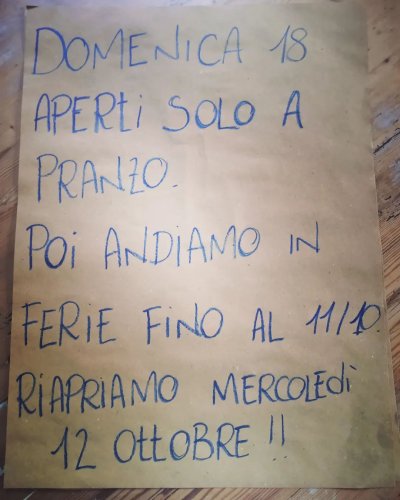 DOMENICA 18
APERti SOLO A
PRANZO.
Poi ANDIAMO iN
FERIE FiNO AL 11/10.
RiAPRiAMO MERCOLEDì
12 OttOBRE!!